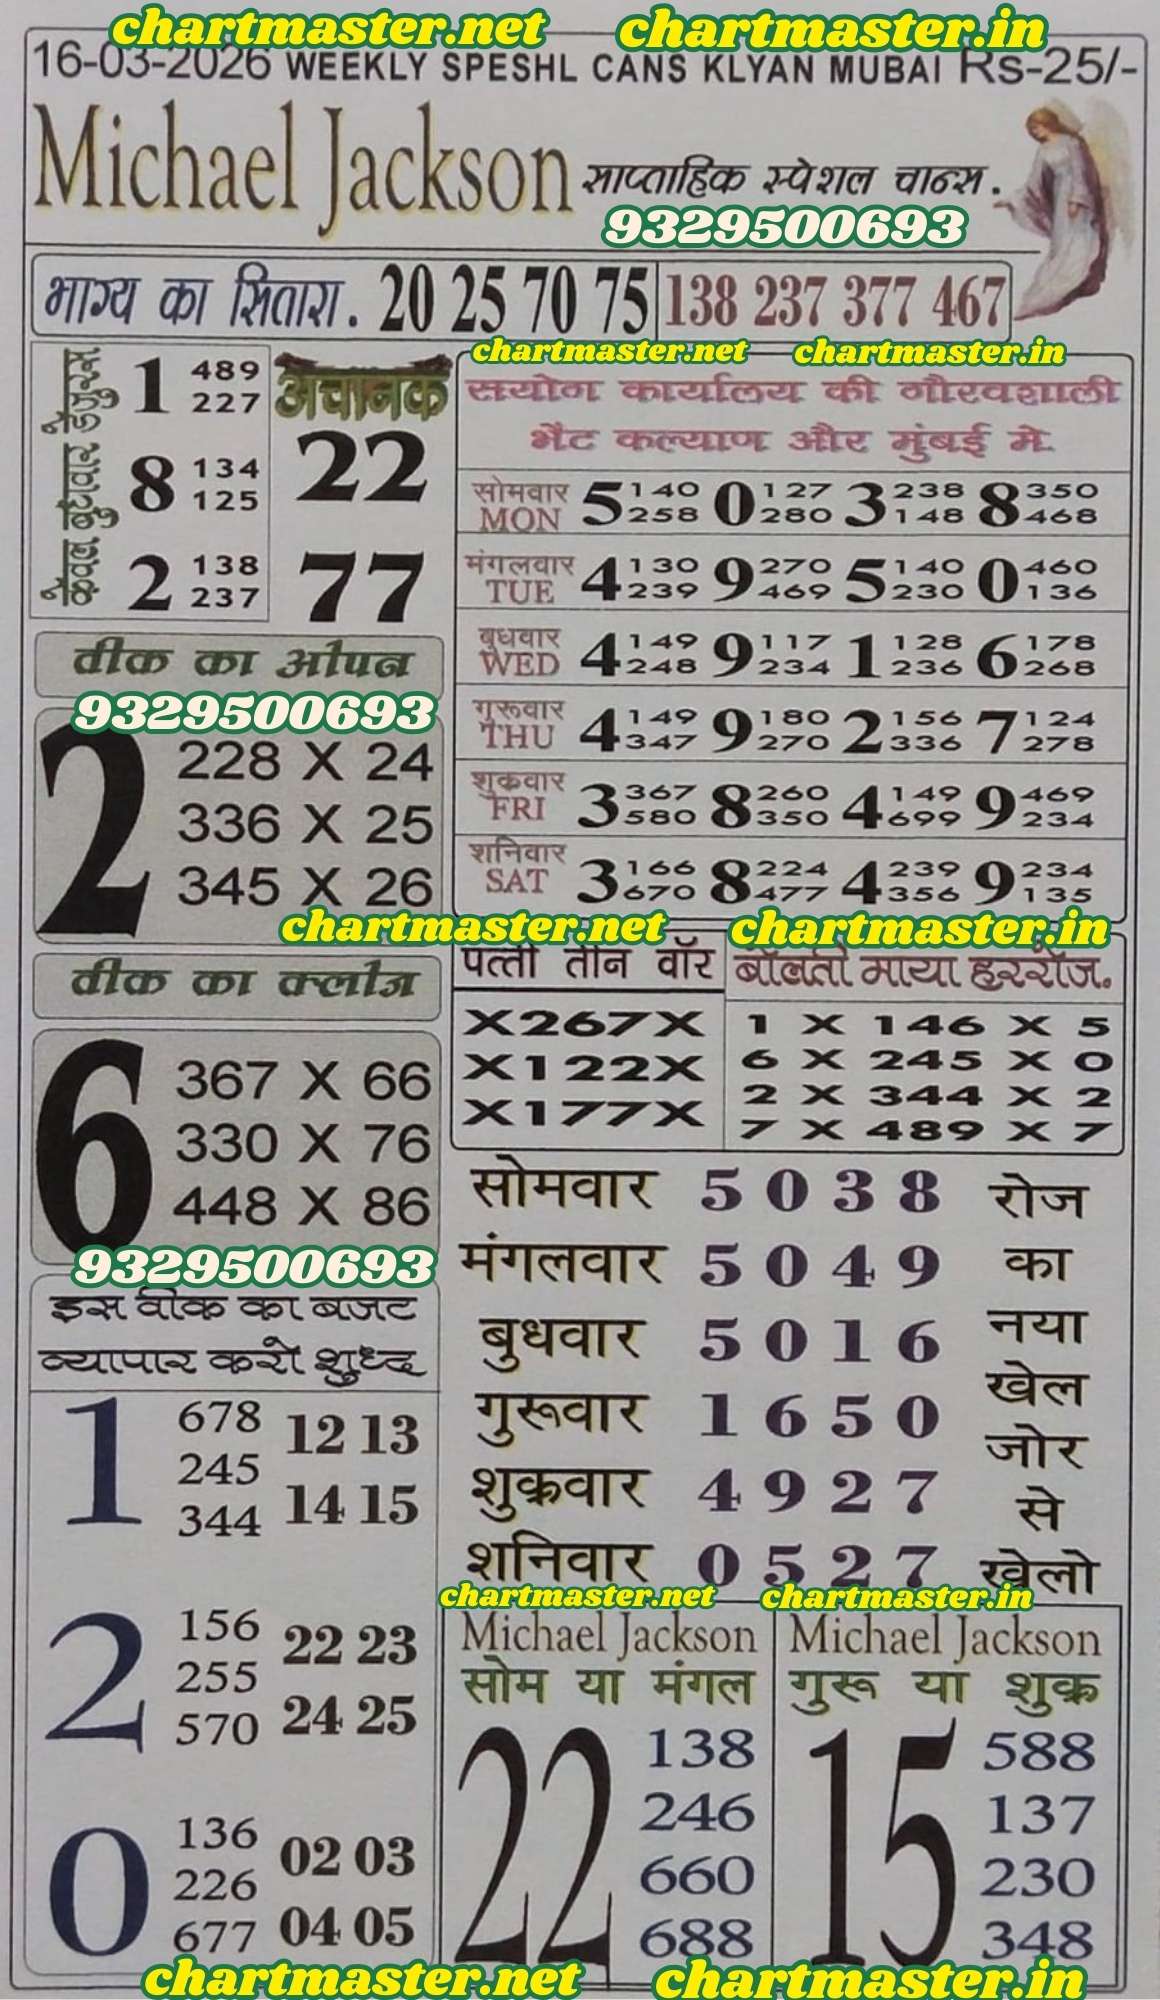 chartmaster.net chartmaster.in
16-03-2026 WEEKLY SPESHL CANS KLYAN MUBAI Rs-25/-
Michael Jackson साप्ताहिक स्पेशल चान्स.
9329500693
भाग्य का सितारा. 20 25 70 75 138 237 377 467
chartmaster.net chartmaster.in
केवल बुधवार हैंगुरूस
1 489
227
8 134
125
2 138
237
अचानक
22
77
सयोग कार्यालय की गौरवशाली
भैट कल्याण और मुंबई मे.
सोमवार MON 5 140 258 0 127 280 3 238 148 8 350 468
मंगलवार TUE 4 130 239 9 270 469 5 140 230 0 460 136
बुधवार WED 4 149 248 9 117 234 1 128 236 6 178 268
गुरूवार THU 4 149 347 9 180 270 2 156 336 7 124 278
शुक्रवार FRI 3 367 580 8 260 350 4 149 699 9 469 234
शनिवार SAT 3 166 670 8 224 477 4 239 356 9 234 135
वीक का ओपन
9329500693
2
228 X 24
336 X 25
345 X 26
chartmaster.net chartmaster.in
वीक का क्लोज
6
367 X 66
330 X 76
448 X 86
9329500693
पत्ती तीन वॉर
X267X
X122X
X177X
बॉलती माया हररोज.
1 X 146 X 5
6 X 245 X 0
2 X 344 X 2
7 X 489 X 7
सोमवार 5 0 3 8
मंगलवार 5 0 4 9
बुधवार 5 0 1 6
गुरूवार 1 6 5 0
शुक्रवार 4 9 2 7
शनिवार 0 5 2 7
रोज
का
नया
खेल
जोर
से
खेलो
इस वीक का बजट
व्यापार करो शुध्द
1
678
245
344
12 13
14 15
2
156
255
570
22 23
24 25
0
136
226
677
02 03
04 05
chartmaster.net chartmaster.in
Michael Jackson
सोम या मंगल
22
138
246
660
688
Michael Jackson
गुरू या शुक्र
15
588
137
230
348
chartmaster.net chartmaster.in